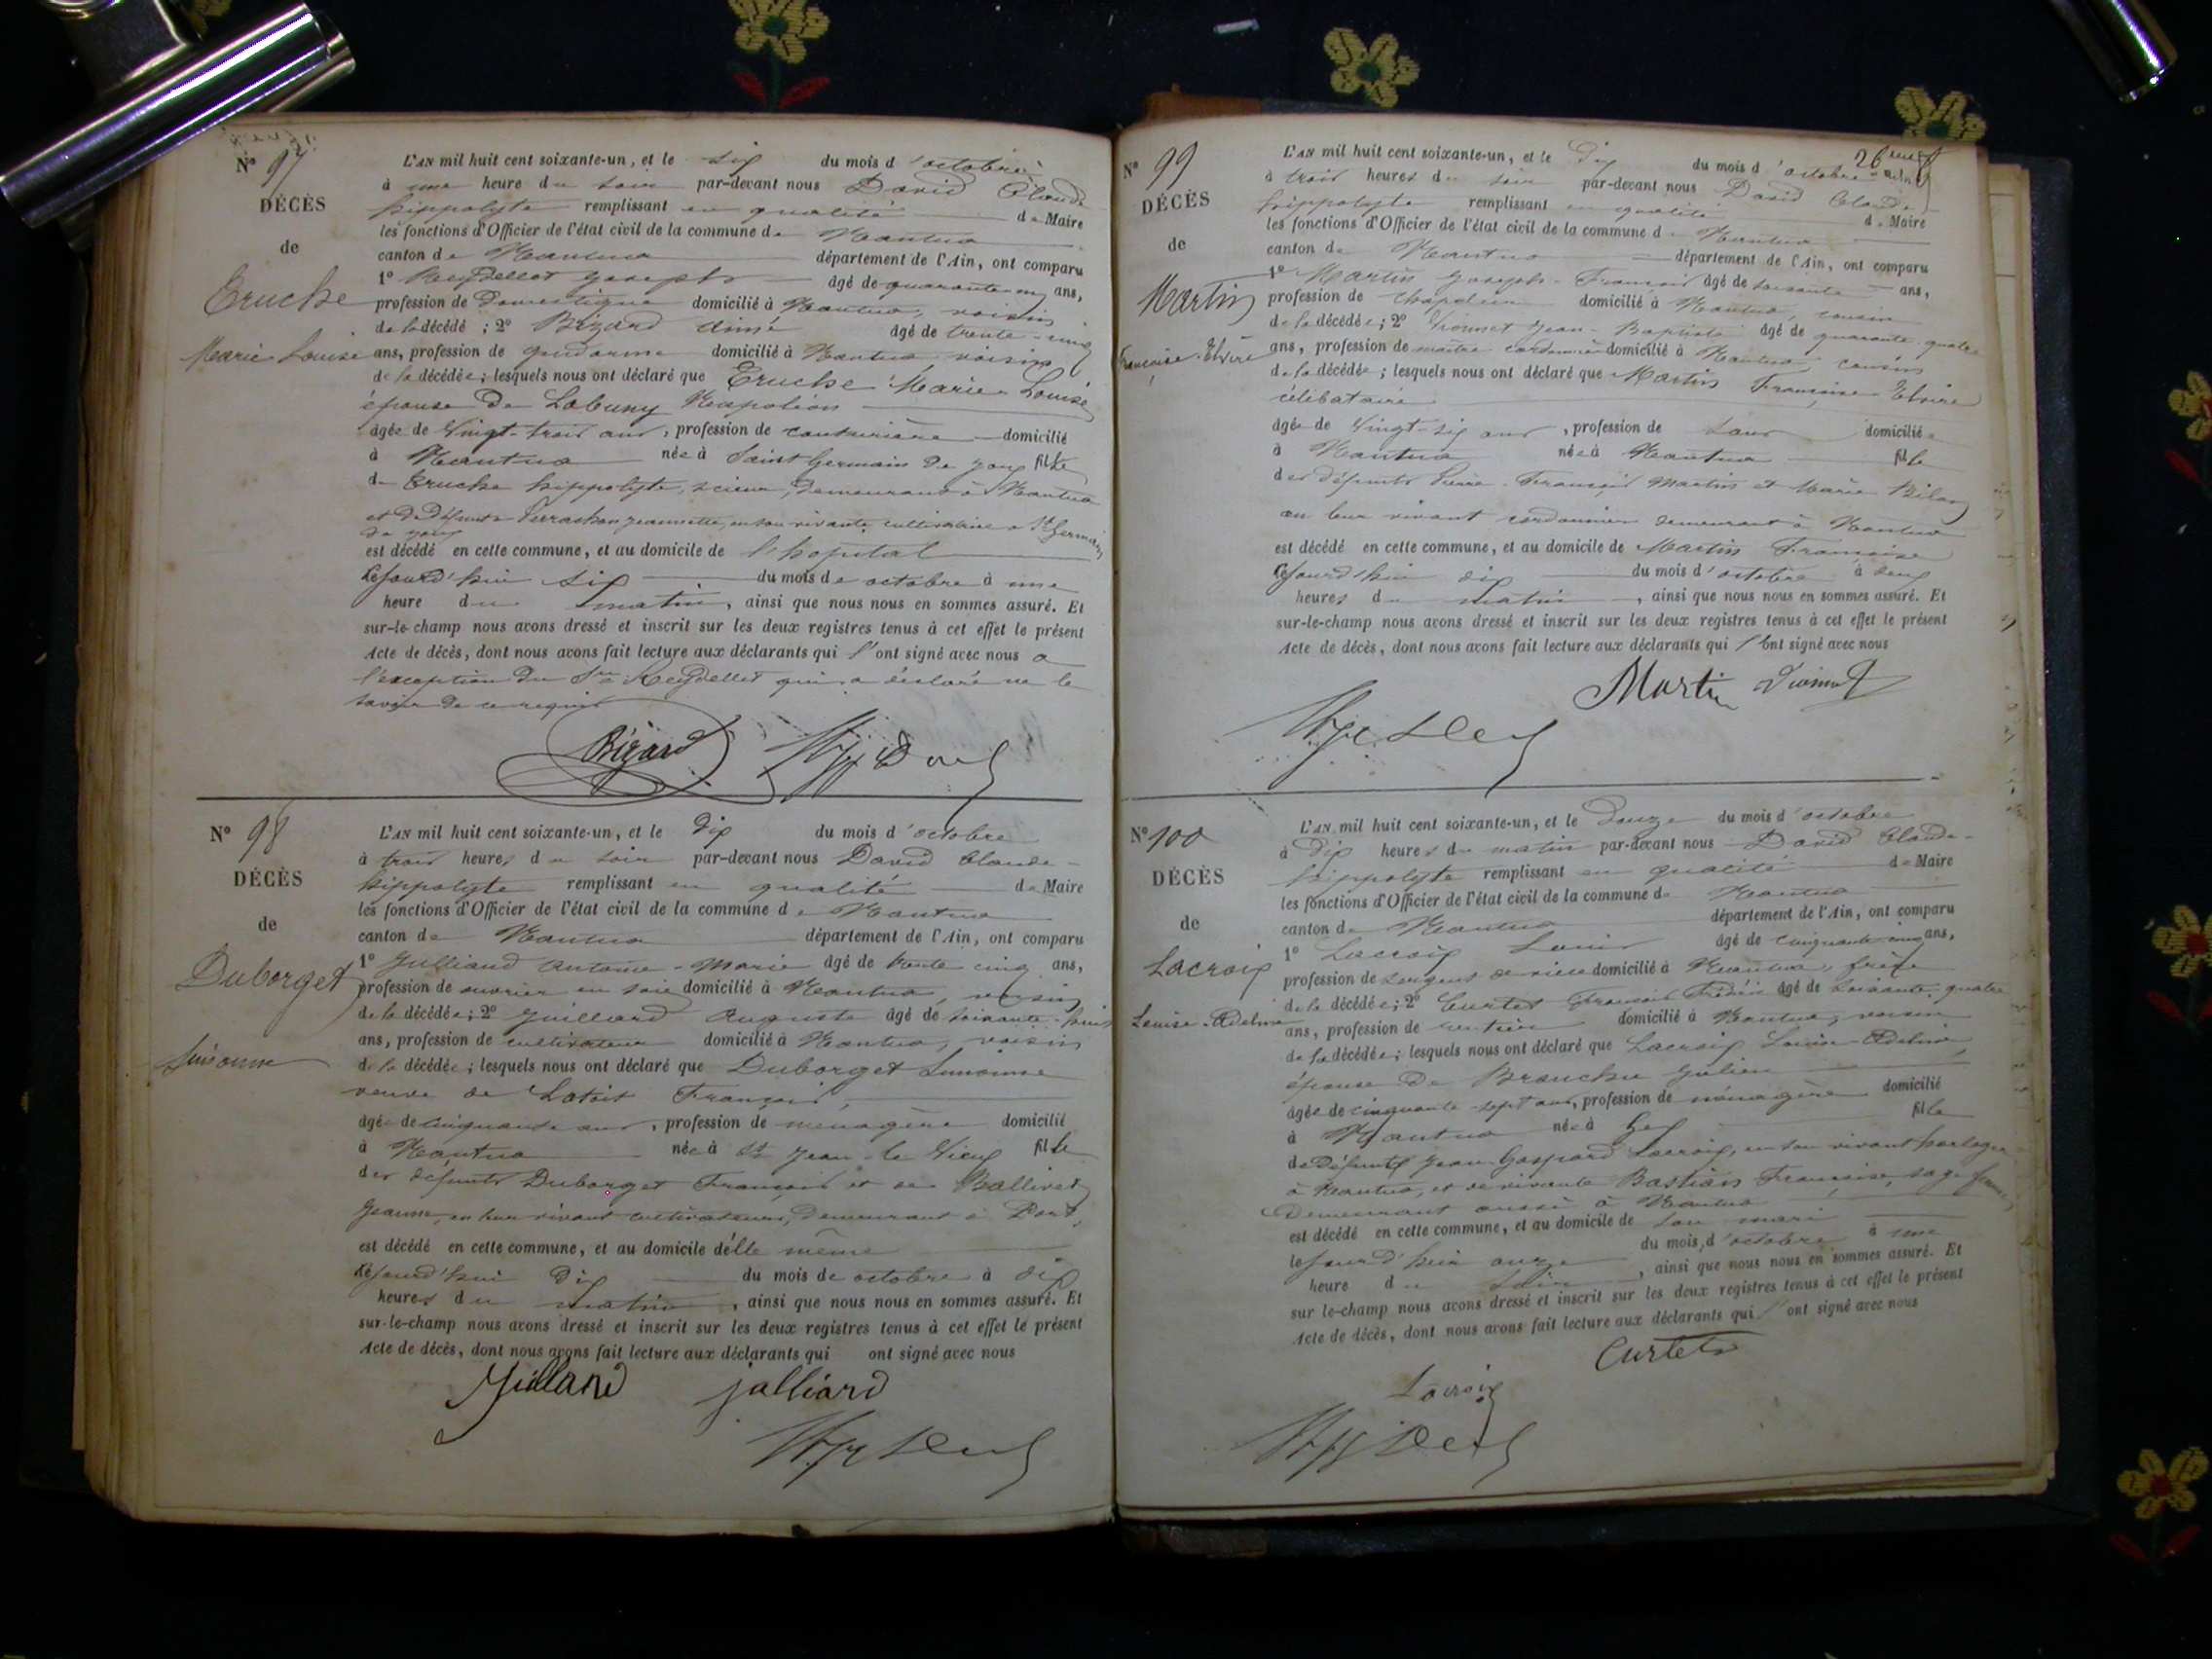 N° 97
DÉCÈS
de
Eruche
Marie Louise
L'AN mil huit cent soixante-un, et le six du mois d'octobre
à une heure du soir par-devant nous David Claude
hippolyte remplissant en qualité de Maire
les fonctions d'Officier de l'état civil de la commune de Nantua
canton de Nantua département de l'Ain, ont comparu
1° Reydellet Joseph âgé de quarante-cinq ans,
profession de Domestique domicilié à Nantua, voisin
de la décédé ; 2° Bizard aimé âgé de trente-cinq
ans, profession de gendarme domicilié à Nantua voisin
de la décédée; lesquels nous ont déclaré que Eruche Marie Louise
épouse de Labuny Napoléon
âgée de Vingt-trois ans, profession de couturière domicilié
à Nantua née à Saint Germain de Joux fille
de Eruche hippolyte, scieur, demeurant à Nantua
et de défunte jeannette, en son vivante cultivatrice à St Germain
de joux
est décédé en cette commune, et au domicile de l'hopital
cejourd'hui six du mois de octobre à une
heure du matin, ainsi que nous nous en sommes assuré. Et
sur-le-champ nous avons dressé et inscrit sur les deux registres tenus à cet effet le présent
Acte de décès, dont nous avons fait lecture aux déclarants qui l'ont signé avec nous a
l'exception du Sr Reydellet qui a déclaré ne le
savoir de ce requis
Bizard
N° 98
DÉCÈS
de
Duborget
Simonne
L'AN mil huit cent soixante-un, et le dix du mois d'octobre
à trois heures du soir par-devant nous David Claude-
hippolyte remplissant en qualité de Maire
les fonctions d'Officier de l'état civil de la commune de Nantua
canton de Nantua département de l'Ain, ont comparu
1° Julliard Antoine-Marie âgé de trente cinq ans,
profession de ouvrier en soie domicilié à Nantua, voisin
de la décédée; 2° Juilliard Auguste âgé de soixante-huit
ans, profession de cultivateur domicilié à Nantua, voisin
de la décédée; lesquels nous ont déclaré que Duborget Simonne
veuve de François,
âgée de cinquante ans, profession de ménagère domicilié
à Nantua née à St Jean-le Vieux fille
des défunts Duborget François et de Ballivet
Jeanne, en leur vivant cultivateurs, demeurant à Port,
est décédé en cette commune, et au domicile d'elle même
cejourd'hui dix du mois de octobre à dix
heures du matin, ainsi que nous nous en sommes assuré. Et
sur-le-champ nous avons dressé et inscrit sur les deux registres tenus à cet effet le présent
Acte de décès, dont nous avons fait lecture aux déclarants qui ont signé avec nous
Juilland julliard
26
N° 99
DÉCÈS
de
Martin
Françoise-Elvire
L'AN mil huit cent soixante-un, et le dix du mois d'octobre
à trois heures du soir par-devant nous David Claude-
hippolyte remplissant en qualité de Maire
les fonctions d'Officier de l'état civil de la commune de Nantua
canton de Nantua département de l'Ain, ont comparu
1° Martin Joseph-François âgé de soixante ans,
profession de chapelier domicilié à Nantua, cousin
de la décédée; 2° Vionnet Jean-Baptiste âgé de quarante-quatre
ans, profession de maître cordonnier domicilié à Nantua, cousin
de la décédée; lesquels nous ont déclaré que Martin Françoise-Elvire
célibataire
âgée de Vingt-six ans, profession de sans domiciliée
à Nantua née à Nantua fille
des défunts Pierre-François Martin et Marie
en leur vivant cordonnier demeurant à Nantua
est décédé en cette commune, et au domicile de Martin Françoise
cejourd'hui dix du mois d'octobre à deux
heures du matin, ainsi que nous nous en sommes assuré. Et
sur-le-champ nous avons dressé et inscrit sur les deux registres tenus à cet effet le présent
Acte de décès, dont nous avons fait lecture aux déclarants qui l'ont signé avec nous
Martin Vionnet
N° 100
DÉCÈS
de
Lacroix
Louise-Adeline
L'AN mil huit cent soixante-un, et le Douze du mois d'octobre
à dix heures du matin par-devant nous David Claude-
hippolyte remplissant en qualité de Maire
les fonctions d'Officier de l'état civil de la commune de Nantua
canton de Nantua département de l'Ain, ont comparu
1° Lacroix Louis âgé de cinquante cinq ans,
profession de sergent de ville domicilié à Nantua, frère
de la décédée; 2° Curtet François âgé de soixante-quatre
ans, profession de rentier domicilié à Nantua, voisin
de la décédée; lesquels nous ont déclaré que Lacroix Louise-Adeline,
épouse de Branche Julien
âgée de cinquante-sept ans, profession de ménagère domicilié
à Nantua née à Gex fille
de défunt Jean-Gaspard Lacroix, en son vivant horloger
à Nantua, et de vivante Bastian Françoise, sage femme,
demeurant aussi à Nantua
est décédé en cette commune, et au domicile de son mari
cejourd'hui onze du mois d'octobre à une
heure du soir, ainsi que nous nous en sommes assuré. Et
sur le-champ nous avons dressé et inscrit sur les deux registres tenus à cet effet le présent
Acte de décès, dont nous avons fait lecture aux déclarants qui l'ont signé avec nous
Curtet
Lacroix